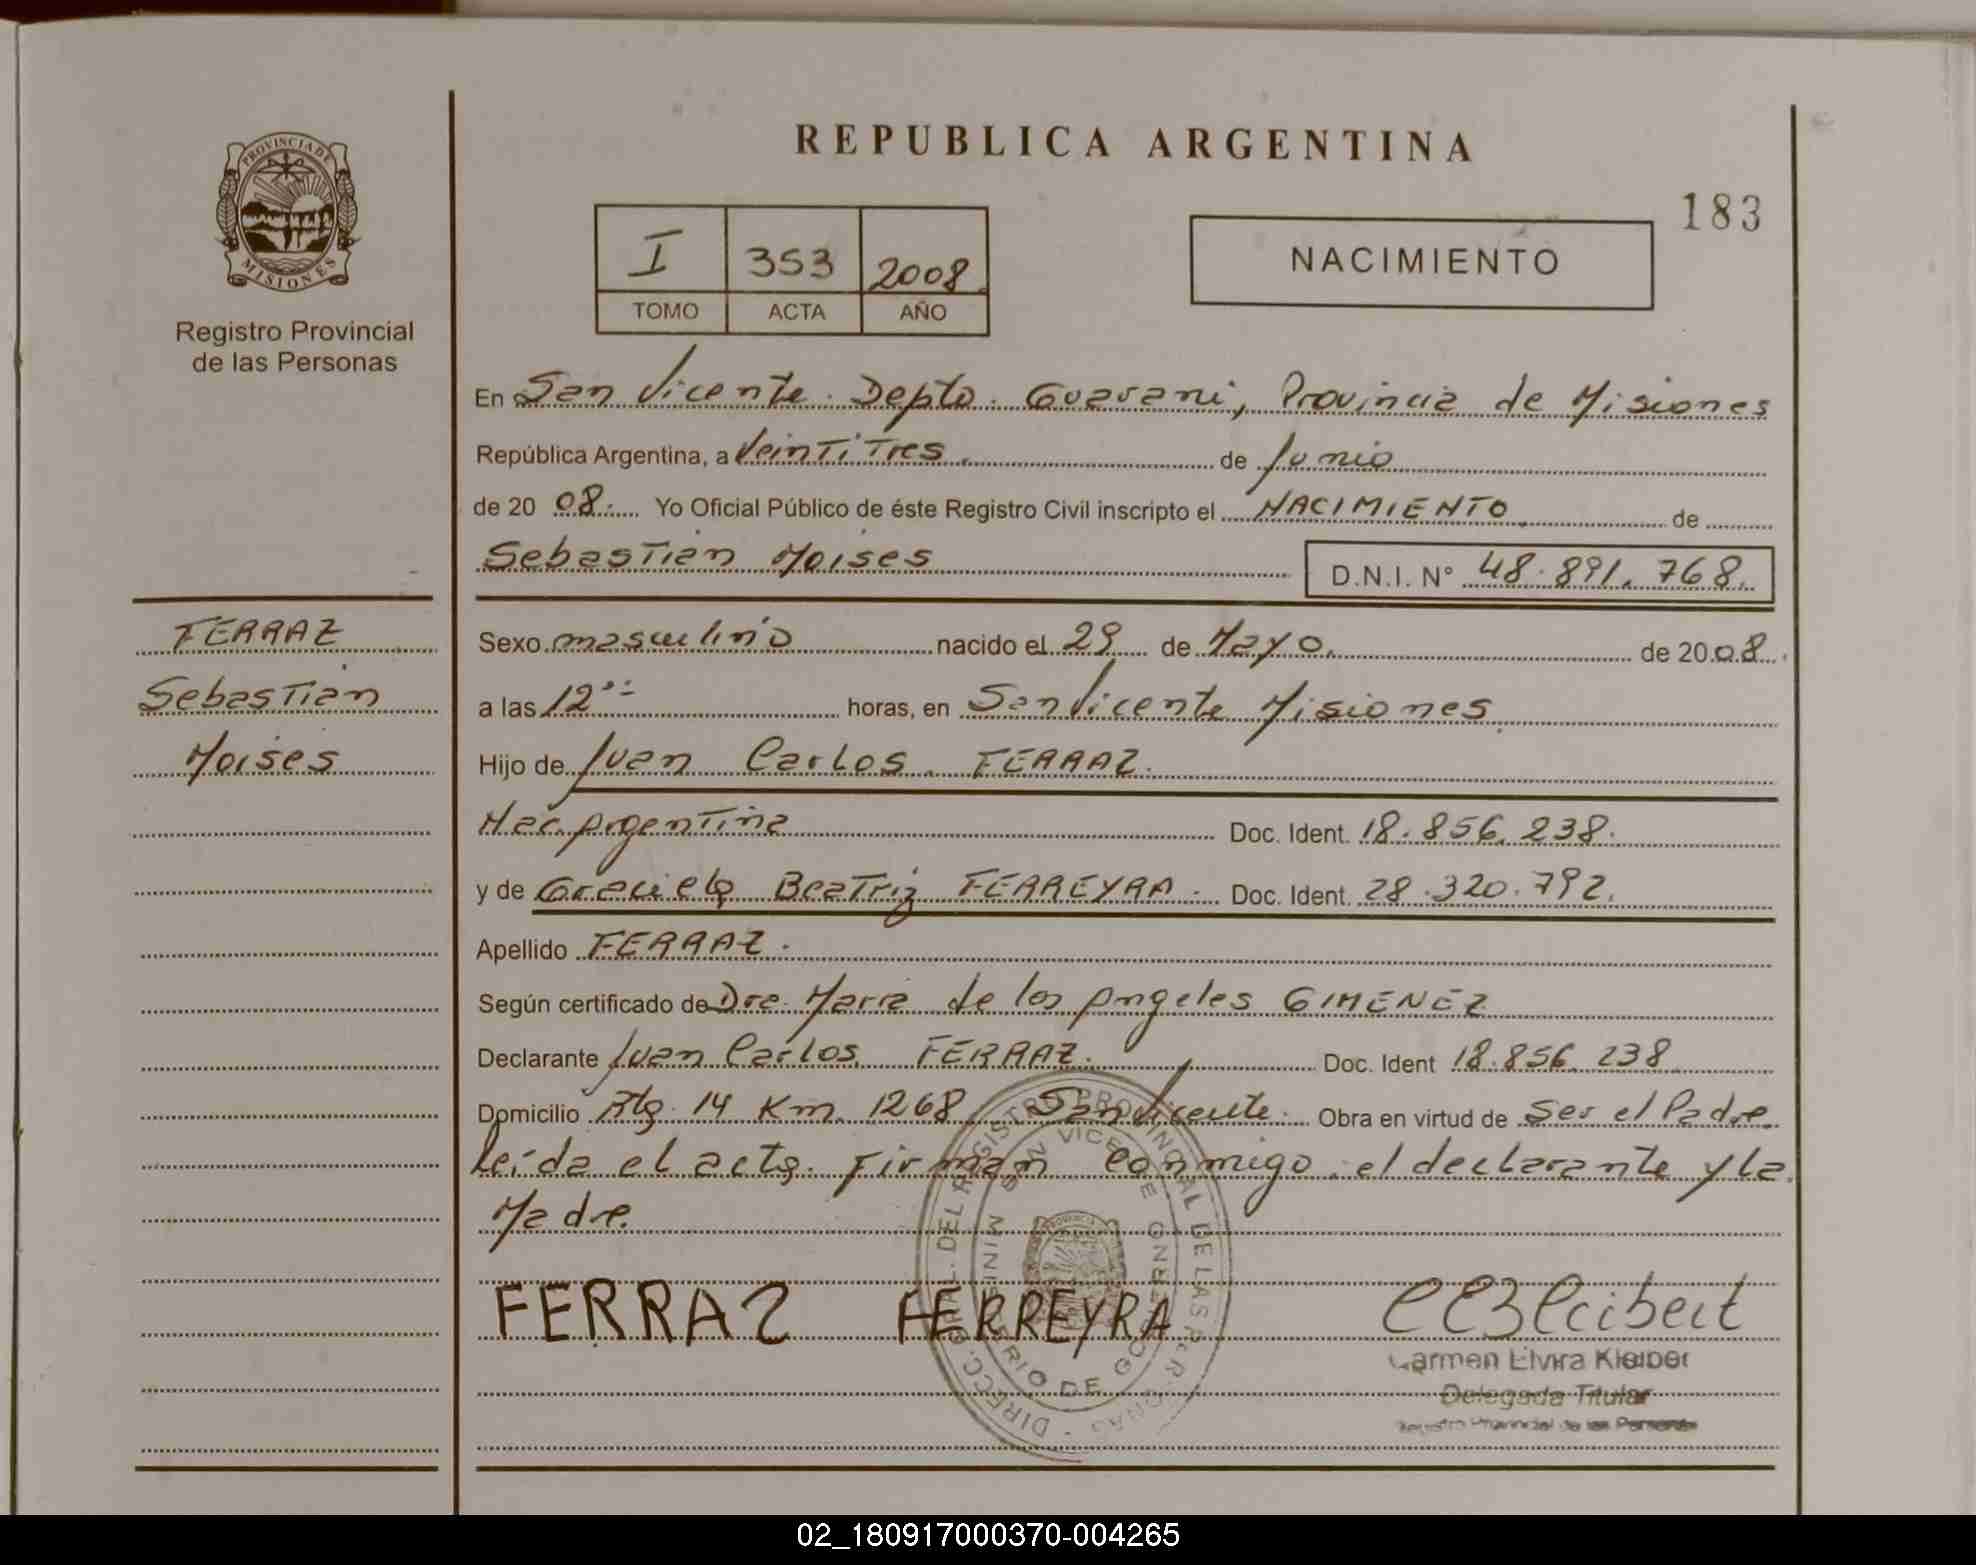 REPUBLICA ARGENTINA
183
PROVINCIA DE
MISIONES
Registro Provincial
de las Personas
I 353 2008
TOMO ACTA AÑO
NACIMIENTO
En San Vicente Depto. Guarani, Provincia de Misiones
República Argentina, a Veintitres de Junio
de 20 08 Yo Oficial Público de éste Registro Civil inscripto el NACIMIENTO de
Sebastian Moises D.N.I. N° 48.891.768
FERRAZ
Sebastian
Moises
Sexo masculino nacido el 29 de Mayo de 2008
a las 12 horas, en San Vicente Misiones
Hijo de Juan Carlos FERRAZ
Nac. Argentina Doc. Ident. 18.856.238
y de Graciela Beatriz FERREYRA Doc. Ident. 28.320.792
Apellido FERRAZ
Según certificado de Dra. Maria de los Angeles GIMENEZ
Declarante Juan Carlos FERRAZ Doc. Ident 18.856.238
Domicilio Rta 14 Km. 1268 San Vicente Obra en virtud de Ser el Padre
Leída el acta. Firman conmigo el declarante y la
Madre
FERRAZ FERREYRA
Carmen Elvira Kleiber
Delegada Titular
Registro Provincial de las Personas
02_180917000370-004265